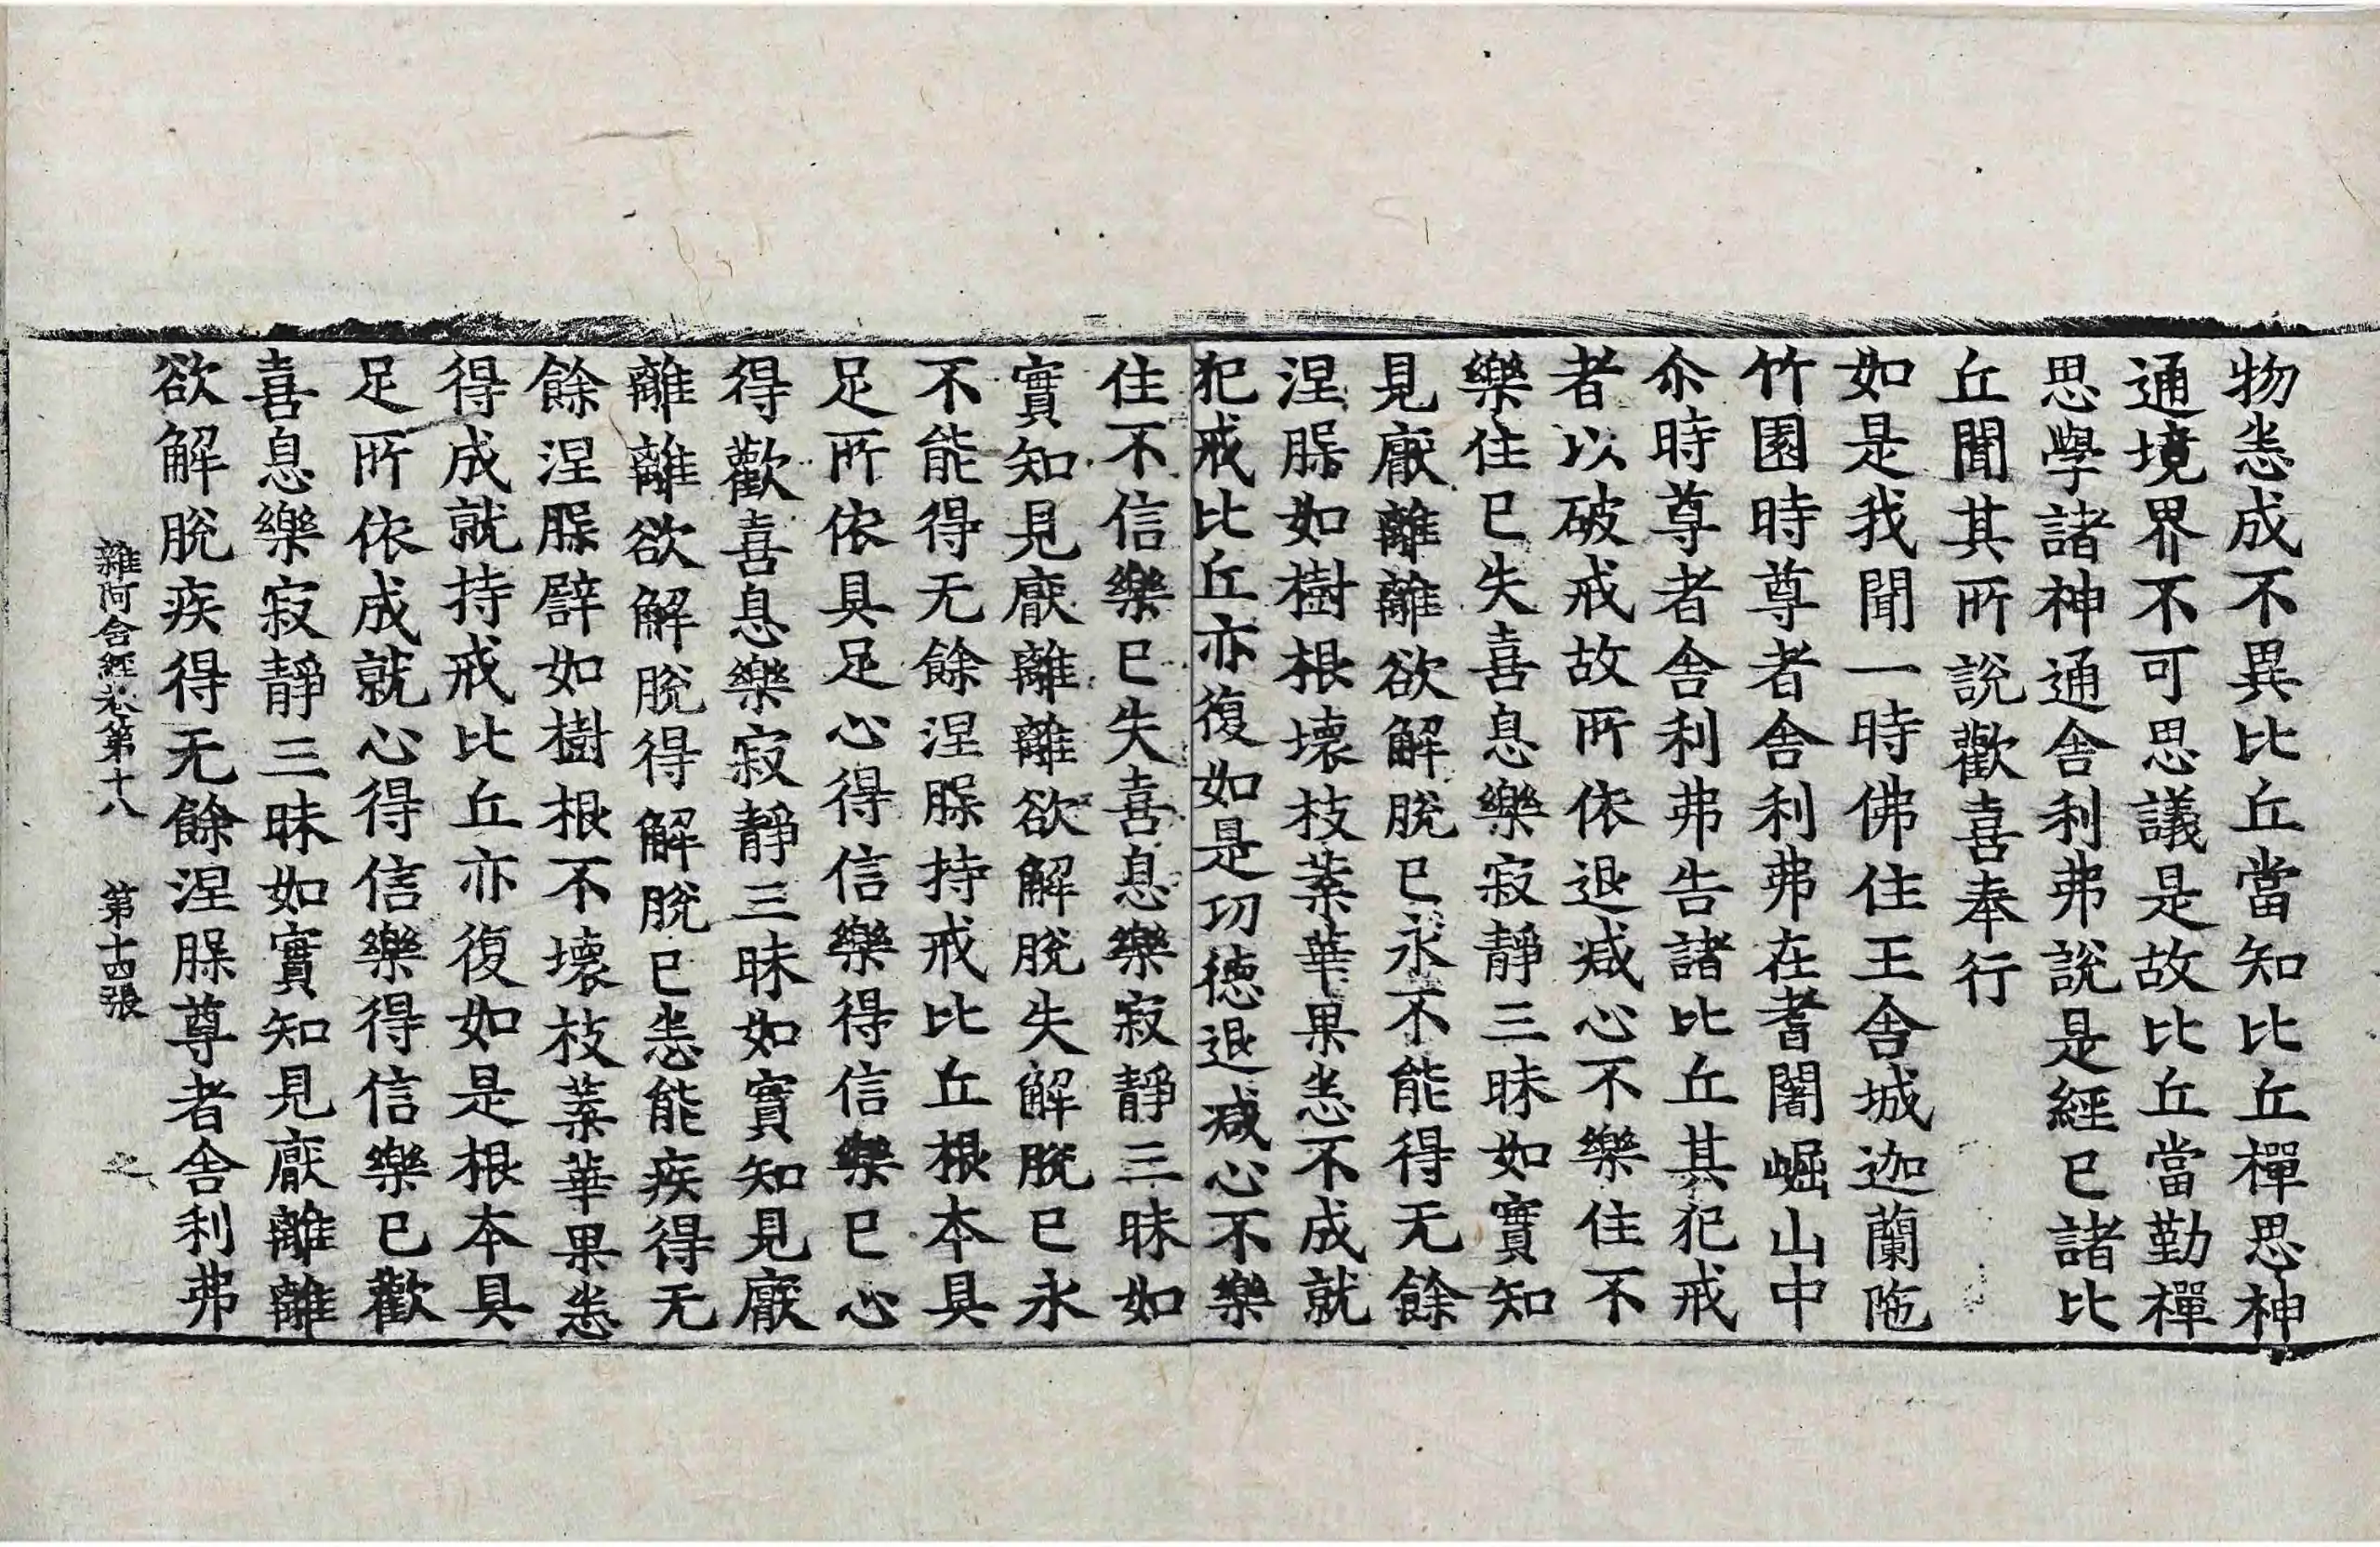 物恙成不異比丘當知比丘禪思神
通境界不可思議是故比丘當勤禪
思學諸神通舍利弗說是經已諸比
丘聞其所說歡喜奉行
如是我聞一時佛住王舍城迦蘭陁
竹園時尊者舍利弗在耆闍崛山中
尒時尊者舍利弗告諸比丘其犯戒
者以破戒故所依退減心不樂住不
樂住已失喜息樂寂靜三昧如實知
見厭離離欲解脫已永不能得无餘
涅槃如樹根壞枝葉華果悉不成就
犯戒比丘亦復如是功德退減心不樂
住不信樂已失喜息樂寂靜三昧如
實知見厭離離欲解脫失解脫已永
不能得无餘涅槃持戒比丘根本具
足所依具足心得信樂得信樂已心
得歡喜息樂寂靜三昧如實知見厭
離離欲解脫得解脫已悉能疾得无
餘涅槃譬如樹根不壞枝葉華果悉
得成就持戒比丘亦復如是根本具
足所依成就心得信樂得信樂已歡
喜息樂寂靜三昧如實知見厭離離
欲解脫疾得无餘涅槃尊者舍利弗
雜阿含經卷第十八 第十四張